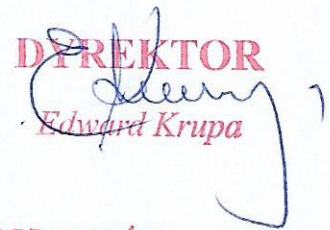 DYREKTOR
Edward Krupa